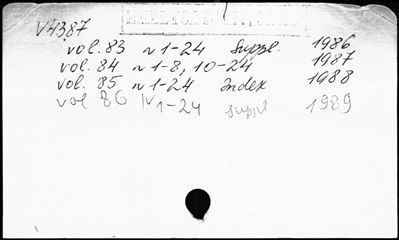 V4387
vol. 83 n 1-24 Suppl. 1986
vol. 84 n 1-8, 10-24 1987
vol. 85 n 1-24 Index 1988
vol 86 N 1-24 suppl 1989